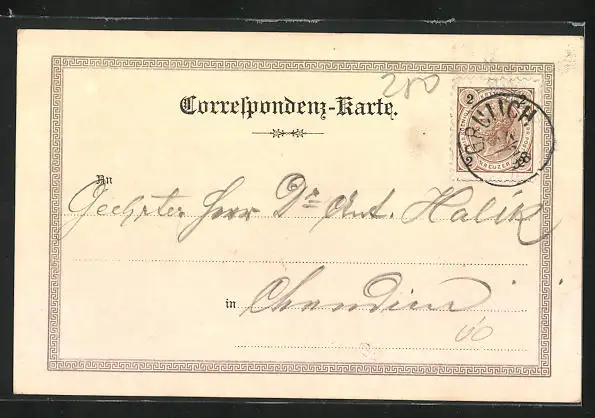 280
Correspondenz-Karte.
2
KREUZER
GRULICH
98
An
Geehrter Herr Dr. Ant. Halik
in
60